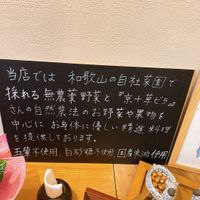 当店では 和歌山の自社菜園で
採れる 無農薬野菜と『京+草ビラ』
さんの自然農法のお野菜や果物を
中心に お身体に優しい精進料理
を提供しております。
五葷不使用、白砂糖不使用、国産米油使用